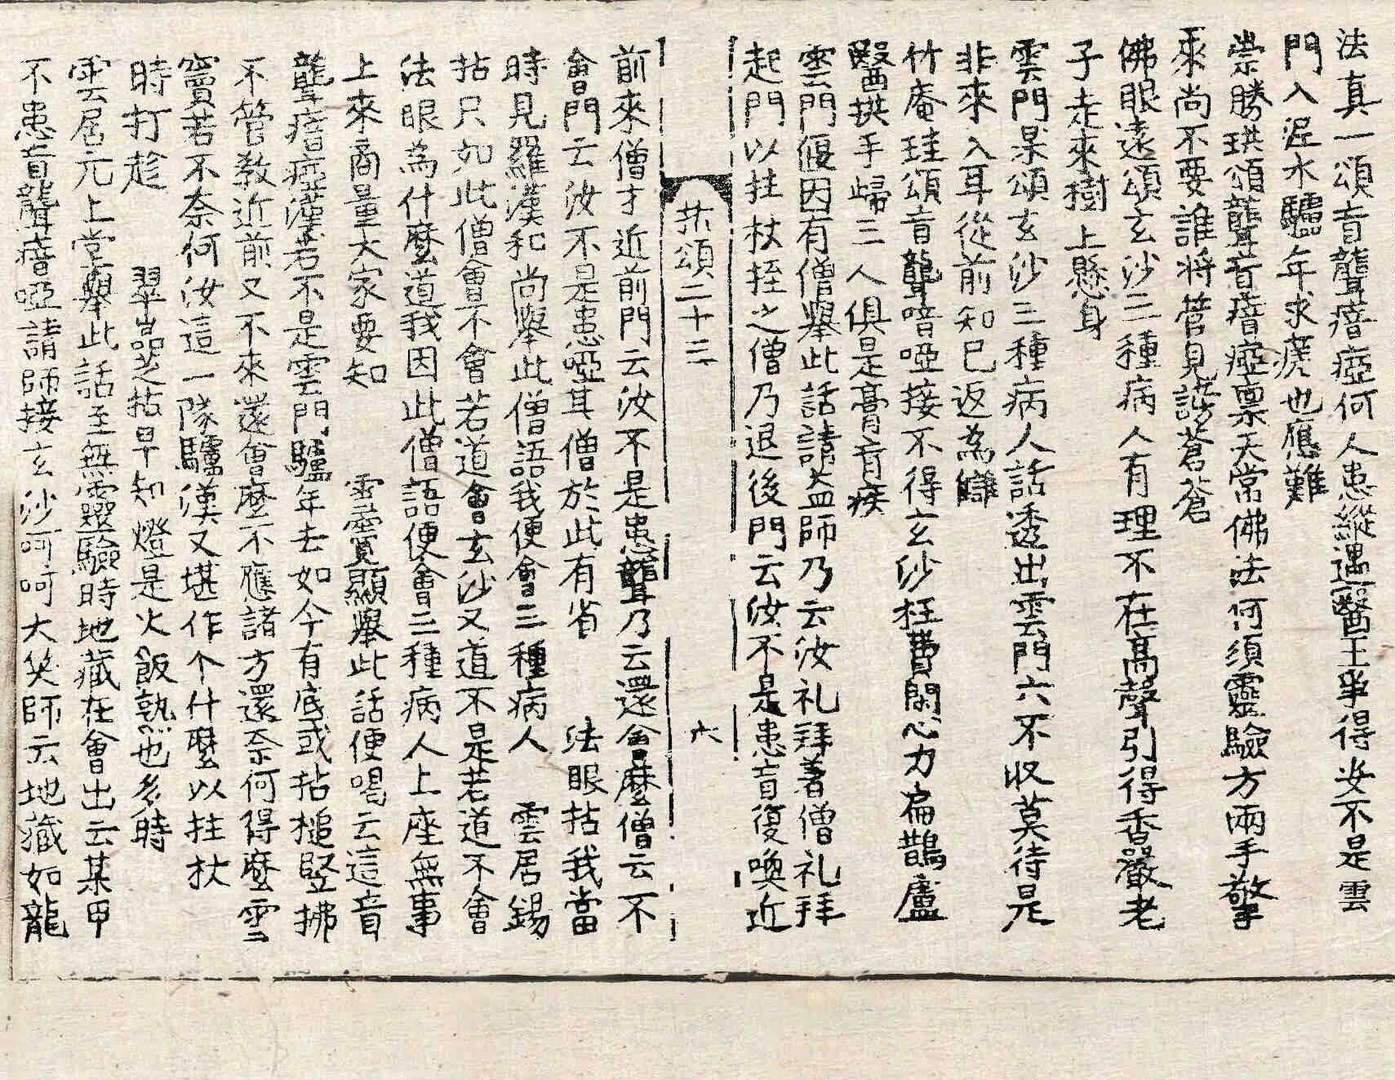 法真一頌盲聾瘖瘂何人患縱遇醫王爭得安不是雲
門入泥水驢年求瘥也應難
崇勝珙頌聾盲瘖瘂禀天常佛法何須靈驗方兩手擎
來尚不要誰將管見謗蒼蒼
佛眼遠頌玄沙三種病人有理不在高聲引得香嚴老
子走來樹上懸身
雲門杲頌玄沙三種病人話透出雲門六不收莫待是
非來入耳從前知己返為讎
竹庵珪頌盲聾喑啞接不得玄沙枉費閑心力扁鵲盧
醫拱手歸三人俱是膏肓疾
雲門偃因有僧擧此話請益師乃云汝礼拜著僧礼拜
起門以拄杖挃之僧乃退後門云汝不是患盲復喚近
拈頌二十三 六
前來僧才近前門云汝不是患聾乃云還會麼僧云不
會門云汝不是患啞其僧於此有省 法眼拈我當
時見羅漢和尚擧此僧語我便會三種病人 雲居錫
拈只如此僧會不會若道會玄沙又道不是若道不會
法眼為什麼道我因此僧語便會三種病人上座無事
上來商量大家要知 雪竇顯擧此話便喝云這盲
聾瘖瘂漢若不是雲門驢年去如今有底或拈槌竪拂
不管教近前又不來還會麼不應諸方還奈何得麼雪
竇若不奈何汝這一隊驢漢又堪作个什麼以拄杖
時打趁 翠嵓芝拈早知燈是火飯熟也多時
雲居元上堂擧此話至無靈驗時地藏在會出云某甲
不患盲聾瘖啞請師接玄沙呵呵大笑師云地藏如龍